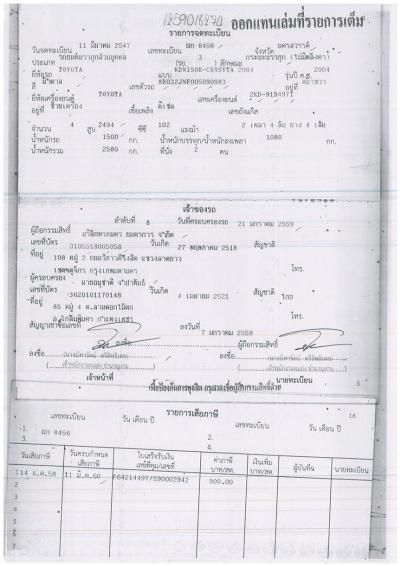 ออกแทนเล่มที่รายการเต็ม
รายการจดทะเบียน
วันจดทะเบียน 11 มีนาคม 2547 เลขทะเบียน ผก 8456 จังหวัด นครสวรรค์
ประเภท รถยนต์บรรทุกส่วนบุคคล (รย. 3 ) ลักษณะ กระบะบรรทุก (ไม่มีหลังคา)
ยี่ห้อรถ TOYOTA แบบ KDN150R-CRSSYTA 2004 รุ่นปี ค.ศ. 2004
สี เลขตัวรถ MR032JNF005090983 อยู่ที่
ยี่ห้อเครื่องยนต์ TOYOTA เลขเครื่องยนต์ 2KD-9194971
อยู่ที่ ข้างเครื่อง เชื้อเพลิง ดีเซล เลขถังแก๊ส
จำนวน 4 สูบ 2494 ซีซี 102 แรงม้า 2 เพลา 4 ล้อ ยาง 4 เส้น
น้ำหนักรถ 1500 กก. น้ำหนักบรรทุก/น้ำหนักลงเพลา 1080 กก.
น้ำหนักรวม 2580 กก. ที่นั่ง 2 คน
เจ้าของรถ
ลำดับที่ 8 วันที่ครอบครองรถ 21 มกราคม 2559
ผู้ถือกรรมสิทธิ์
เลขที่บัตร 0105518005058 วันเกิด 27 พฤษภาคม 2518 สัญชาติ
ที่อยู่ 108 หมู่ 2 ถนนวิภาวดีรังสิต แขวงลาดยาว
เขตจตุจักร กรุงเทพมหานคร โทร.
ผู้ครอบครอง
เลขที่บัตร 3620101170148 วันเกิด 4 เมษายน 2521 สัญชาติ ไทย
ที่อยู่ 85 หมู่ 4 โทร.
สัญญาเช่าซื้อเลขที่ ลงวันที่ 7 มกราคม 2559
ลงชื่อ ผู้ถือกรรมสิทธิ์
ลงชื่อ ลงชื่อ
เจ้าหน้าที่ นายทะเบียน
5
รายการเสียภาษี
16
เลขทะเบียน วัน เดือน ปี เลขทะเบียน วัน เดือน ปี
1. ผก 8456 2.
3. 4.
วันเสียภาษี วันครบกำหนดเสียภาษี ใบเสร็จรับเงิน เล่มที่/เลขที่ ค่าภาษี บาท/สต. เงินเพิ่ม บาท/สต. ผู้บันทึก นายทะเบียน
1 14 ธ.ค.58 11 มี.ค.60 P64214497/590002942 900.00
2
3
4
5
6
7